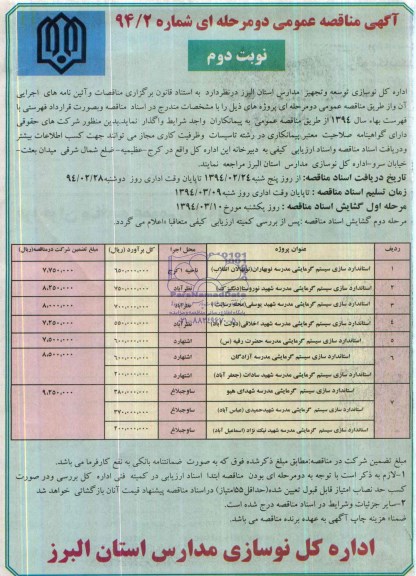 آگهی مناقصه عمومی دومرحله ای شماره ۹۴/۲
نوبت دوم
اداره کل نوسازی توسعه وتجهیز مدارس استان البرز درنظردارد به استناد قانون برگزاری مناقصات وآئین نامه های اجرایی
آن واز طریق مناقصه عمومی دومرحله ای پروژه های ذیل را با مشخصات مندرج در اسناد مناقصه وبصورت قرارداد فهرستی با
فهرست بهاء سال ۱۳۹۴ از طریق مناقصه عمومی به پیمانکاران واجد شرایط واگذار نماید.بدین منظور شرکت های حقوقی
دارای گواهینامه صلاحیت معتبر پیمانکاری در رشته تاسیسات وظرفیت کاری مجاز می توانند جهت کسب اطلاعات بیشتر
ودریافت اسناد مناقصه واسناد ارزیابی کیفی به دبیرخانه این اداره کل واقع در کرج-عظیمیه-ضلع شمال شرقی میدان بعثت-
خیابان سرو-اداره کل نوسازی مدارس استان البرز مراجعه نمایند.
تاریخ دریافت اسناد مناقصه: از روز پنج شنبه ۱۳۹۴/۰۲/۲۴ تاپایان وقت اداری روز دوشنبه ۹۴/۰۲/۲۸
زمان تسلیم اسناد مناقصه : تاپایان وقت اداری روز شنبه ۱۳۹۴/۰۳/۰۹
مرحله اول گشایش اسناد مناقصه : روز یکشنبه مورخ ۱۳۹۴/۰۳/۱۰
مرحله دوم گشایش اسناد مناقصه :پس از بررسی کمیته ارزیابی کیفی متعاقبا اعلام می گردد.
ردیف عنوان پروژه محل اجرا کل برآورد (ریال) مبلغ تضمین شرکت درمناقصه(ریال)
۱ استاندارد سازی سیستم گرمایشی مدرسه نوبهاران ناحیه ۱ کرج ۶۵۰,۰۰۰,۰۰۰ ۷,۷۵۰,۰۰۰
۲ استاندارد سازی سیستم گرمایشی مدرسه شهید نظرآباد ۷۵۰,۰۰۰,۰۰۰ ۸,۲۵۰,۰۰۰
۳ استاندارد سازی سیستم گرمایشی مدرسه شهید یوسفی نظرآباد ۷۰۰,۰۰۰,۰۰۰ ۸,۰۰۰,۰۰۰
۴ استاندارد سازی سیستم گرمایشی مدرسه شهید اخلاقی نظرآباد ۵۵۰,۰۰۰,۰۰۰ ۷,۲۵۰,۰۰۰
۵ استاندارد سازی سیستم گرمایشی مدرسه حضرت رقیه (س) اشتهارد ۶۰۰,۰۰۰,۰۰۰ ۷,۵۰۰,۰۰۰
۶ استاندارد سازی سیستم گرمایشی مدرسه آزادگان اشتهارد ۸,۵۰۰,۰۰۰
استاندارد سازی سیستم گرمایشی مدرسه شهید سادات (جعفر آباد) اشتهارد
۷ استاندارد سازی سیستم گرمایشی مدرسه شهدای هیو ساوجبلاغ ۳۸۰,۰۰۰,۰۰۰ ۹,۲۵۰,۰۰۰
استاندارد سازی سیستم گرمایشی مدرسه شهیدحمیدی (عباس آباد) ساوجبلاغ ۳۷۰,۰۰۰,۰۰۰
استاندارد سازی سیستم گرمایشی مدرسه شهید نیک نژاد (اسماعیل آباد) ساوجبلاغ ۲۰۰,۰۰۰,۰۰۰
مبلغ تضمین شرکت در مناقصه:مطابق مبلغ ذکرشده فوق که به صورت ضمانتنامه بانکی به نفع کارفرما می باشد.
۱-لازم به ذکر است با توجه به دومرحله ای بودن مناقصه ابتدا اسناد ارزیابی در کمیته فنی اداره کل بررسی ودر صورت
کسب حد نصاب امتیاز قابل قبول تعیین شده(حداقل۵۵امتیاز) دراسناد مناقصه پیشنهاد قیمت آنان بازگشائی خواهد شد
۲-سایر جزئیات وشرایط در اسناد مناقصه درج شده است.
ضمنا: هزینه چاپ آگهی به عهده برنده مناقصه می باشد.
اداره کل نوسازی مدارس استان البرز